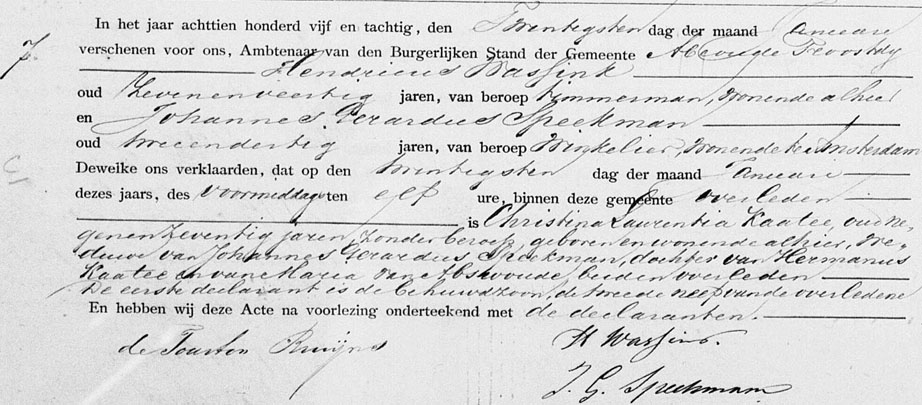 7
In het jaar achttien honderd vijf en tachtig, den Twintigsten dag der maand Januari
verschenen voor ons, Ambtenaar van den Burgerlijken Stand der Gemeente Abcoude Proostdy
Hendricus Wassink
oud Zevenenveertig jaren, van beroep timmerman, wonende alhier
en Johannes Gerardus Speekman
oud tweeendertig jaren, van beroep Winkelier, wonende te Amsterdam
Dewelke ons verklaarden, dat op den twintigsten dag der maand Januari
dezes jaars, des Voormiddags ten elf ure, binnen deze gemeente overleden
is Christina Laurentia Kaatee, oud ne-
genen zeventig jaren, zonder beroep, geboren en wonende alhier, we-
duwe van Johannes Gerardus Speekman, dochter van Hermanus
Kaatee en van Maria van Abswoude, beiden overleden
De eerste declarant is de behuwdzoon, de tweede neef van de overledene
En hebben wij deze Acte na voorlezing onderteekend met de declaranten.
de Ruijns
H Wassink.
J. G. Speekman